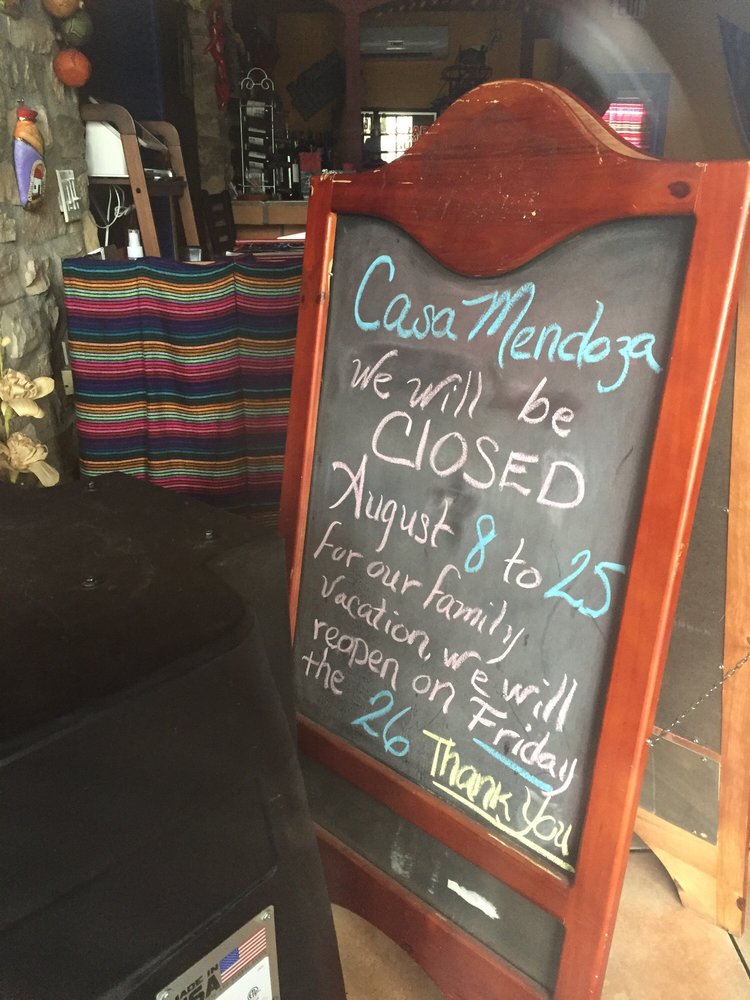 Casa Mendoza
We will be
CLOSED
August 8 to 25
for our family
vacation, we will
reopen on Friday
the 26 Thank you
MADE IN
USA